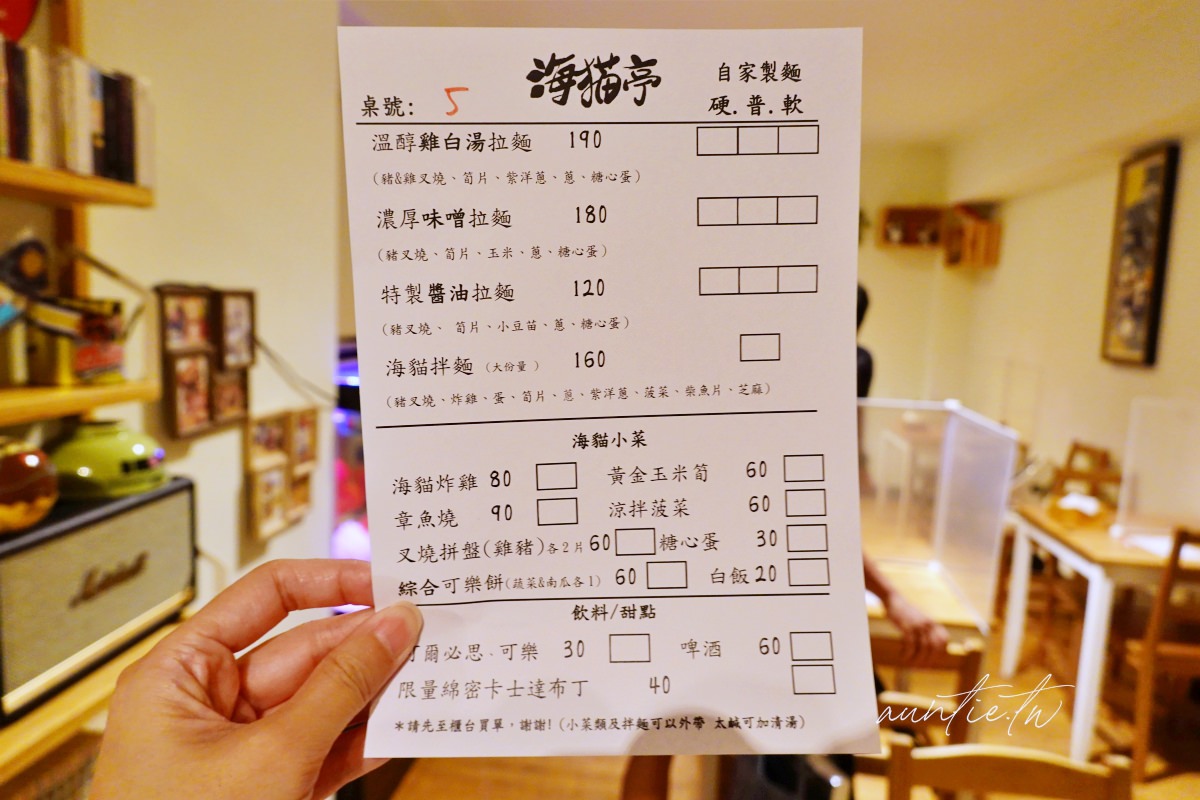 海貓亭
自家製麵
桌號: 5
硬.普.軟
溫醇雞白湯拉麵 190
(豬&雞叉燒、筍片、紫洋蔥、蔥、糖心蛋)
濃厚味噌拉麵 180
(豬叉燒、筍片、玉米、蔥、糖心蛋)
特製醬油拉麵 120
(豬叉燒、 筍片、小豆苗、蔥、糖心蛋)
海貓拌麵 (大份量 ) 160
(豬叉燒、炸雞、蛋、筍片、蔥、紫洋蔥、菠菜、柴魚片、芝麻)
海貓小菜
海貓炸雞 80 黃金玉米筍 60
章魚燒 90 涼拌菠菜 60
叉燒拼盤(雞豬)各2片 60 糖心蛋 30
綜合可樂餅(蔬菜&南瓜各1) 60 白飯 20
飲料/甜點
可爾必思、可樂 30 啤酒 60
限量綿密卡士達布丁 40
*請先至櫃台買單，謝謝! (小菜類及拌麵可以外帶 太鹹可加清湯)
Marshall
auntie.tw